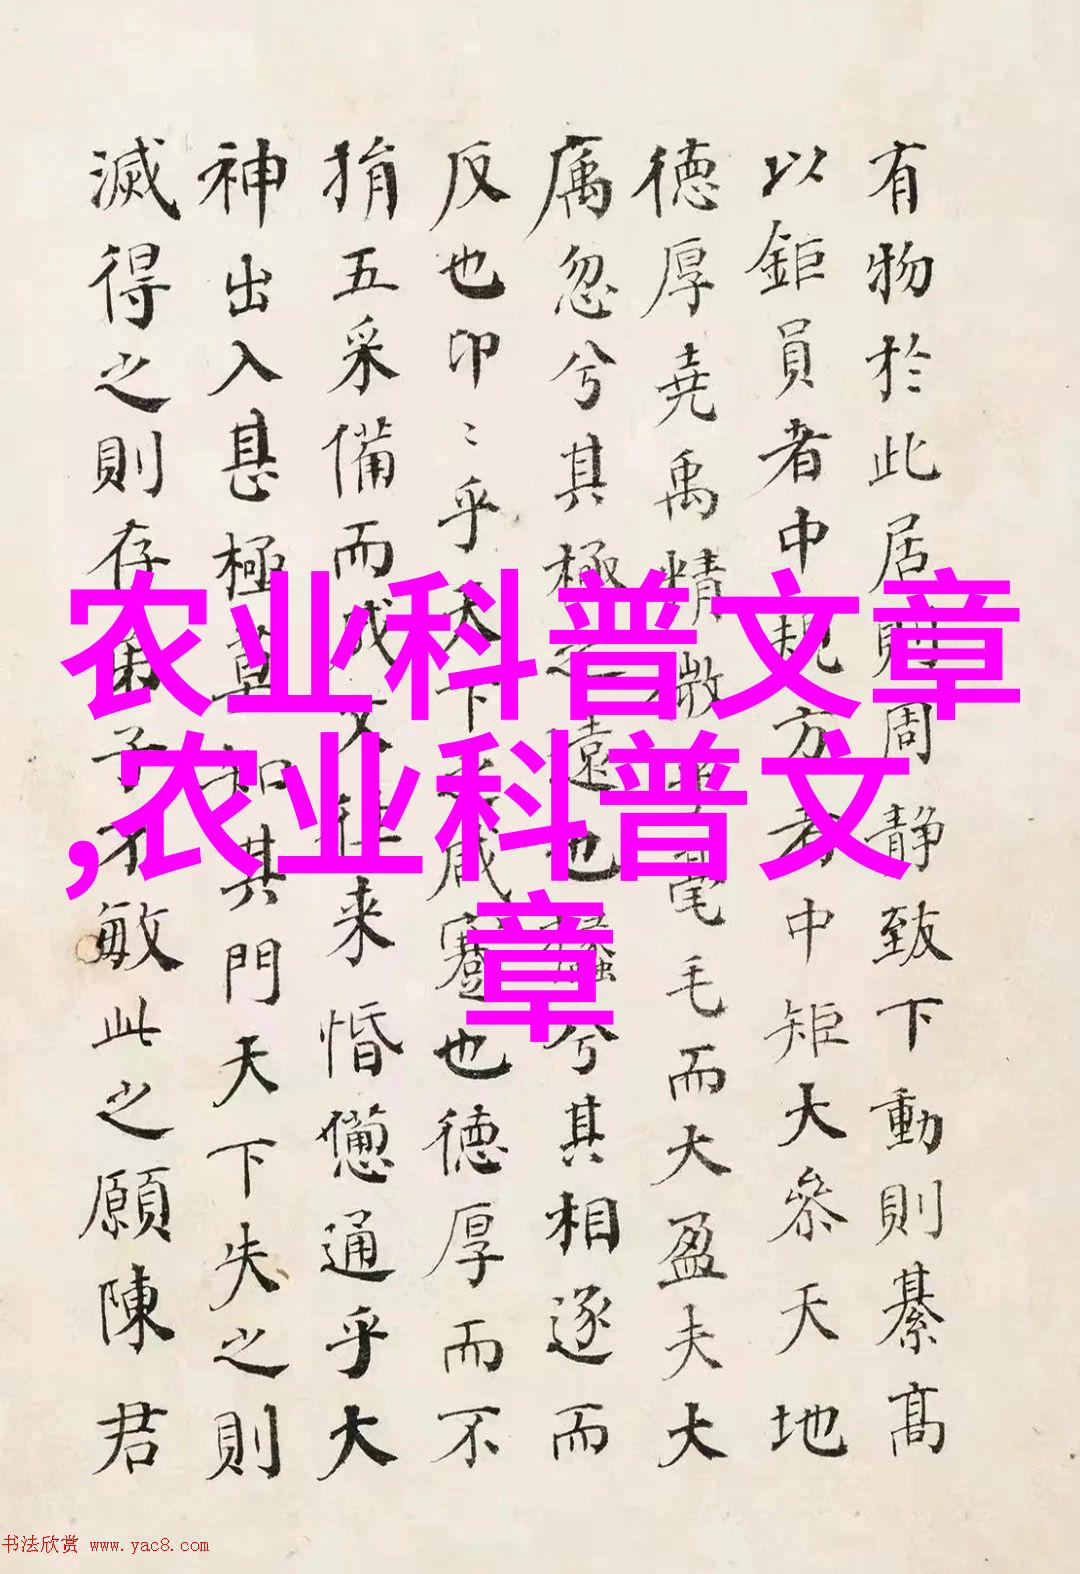 有物於此居則周靜致下動則綦高
以鉅員者中規方者中矩大參天地
德厚堯禹精微乎毫毛而大盈夫大
厲忽兮其極之遠也攭兮其相逐而
反也卬〻乎天下之咸蹇也德厚而不
捐五采備而成文往來惛憊通乎大
神出入甚極莫知其門天下失之則
滅得之則存弟子不敏此之願陳君
农业科普文章
,农业科普文
章
书法欣赏 www.yac8.com